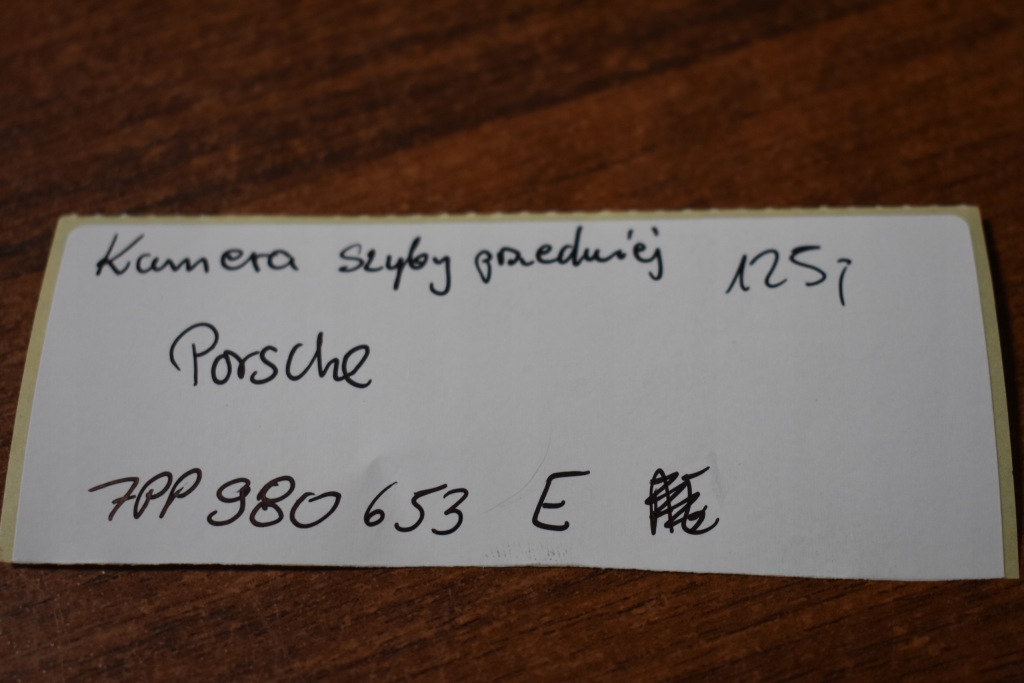 Kamera szyby przedniej 125,-
Porsche
7PP 980 653 E